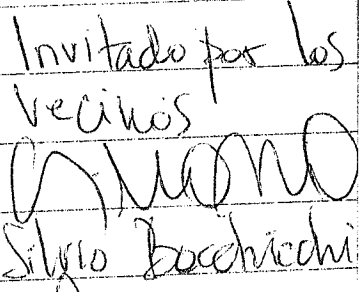 Invitado por los
vecinos
Silvio Bocchicchi